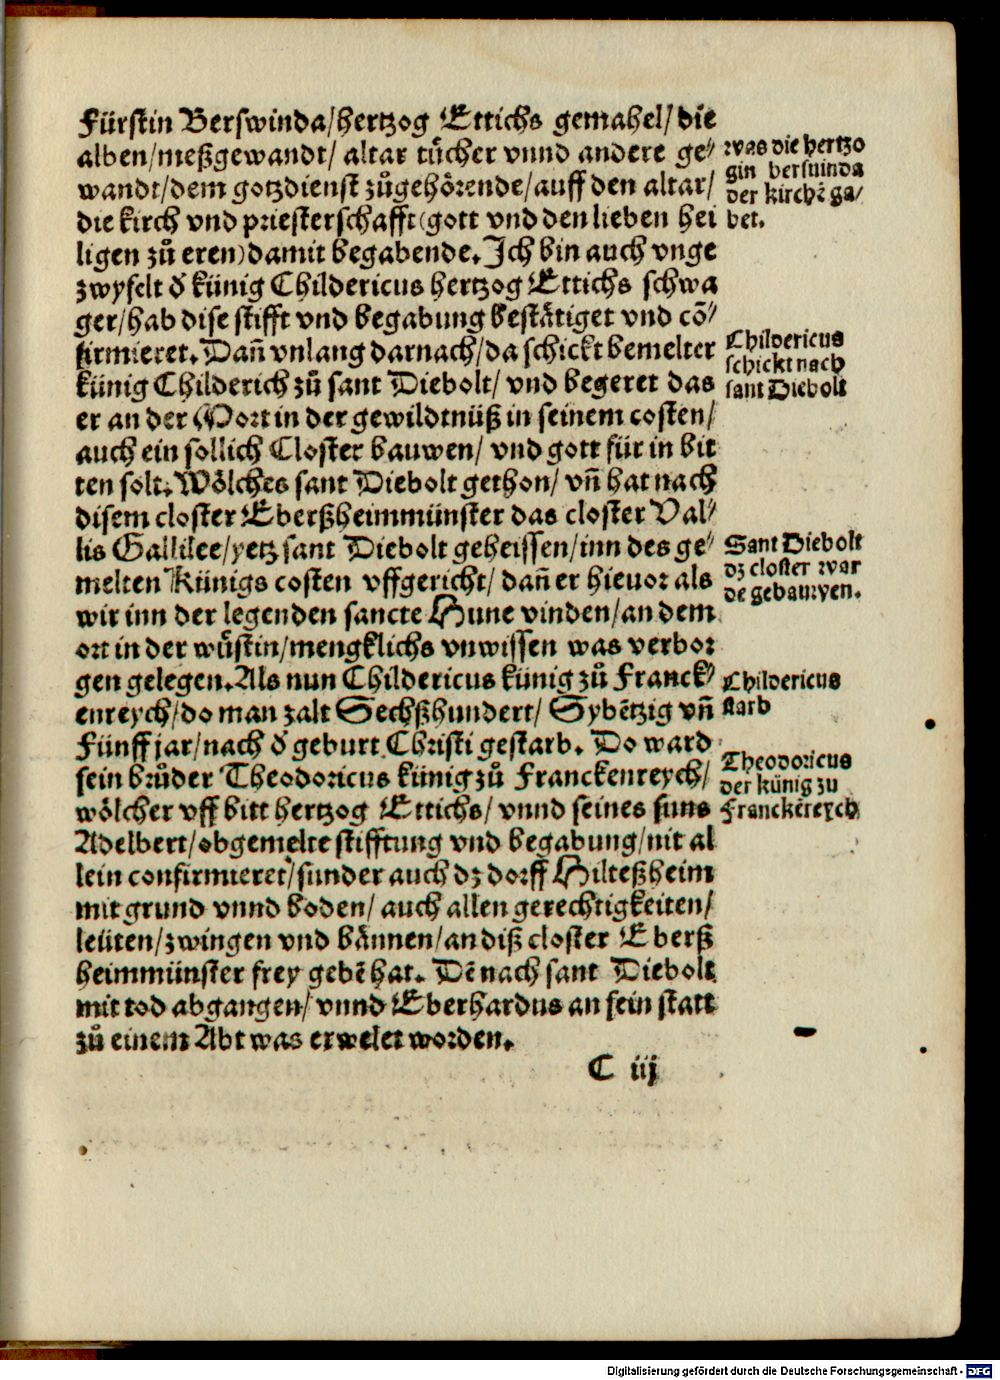 Fürstin Berswinda/hertzog Ettichs gemahel/die
alben/meßgewandt/ altar tücher vnnd andere ge⸗
wandt/dem gotzdienst zůgehörende/auff den altar/
die kirch vnd priesterschafft(gott vnd den lieben hei
ligen zů eren)damit begabende. Ich bin auch vnge
zwyfelt ď künig Childericus hertzog Ettichs schwa
ger/hab dise stifft vnd begabung bestätiget vnd cō⸗
firmieret. Dañ vnlang darnach/da schickt bemelter
künig Childerich zů sant Diebolt/ vnd begeret das
er an der Port in der gewildtnüß in seinem costen/
auch ein sollich Closter bauwen/ vnd gott für in bit
ten solt. Wölches sant Diebolt gethon/ vñ hat nach
disem closter Eberßheimmünster das closter Val⸗
lis Gallilee/yetz sant Diebolt geheissen/inn des ge⸗
melten Künigs costen vffgericht/ dañ er hieuor als
wir inn der legenden sancte Hune vinden/an dem
ort in der wüstin/mengklichs vnwissen was verbor
gen gelegen. Als nun Childericus künig zů Franck⸗
enreych/do man zalt Sechßhundert/ Sybētzig vñ
Fünff jar/nach ď geburt Christi gestarb. Do ward
sein brůder Theodoricus künig zů Franckenreych/
wölcher vff bitt hertzog Ettichs/ vnnd seines suns
Adelbert/obgemelte stifftung vnd begabung/nit al
lein confirmieret/sunder auch dz dorff Hilteßheim
mit grund vnnd boden/ auch allen gerechtigkeiten/
leüten/zwingen vnd bännen/an diß closter Eberß
heimmünster frey gebē hat. Dē nach sant Diebolt
mit tod abgangen/ vnnd Eberhardus an sein statt
zů einem Abt was erwelet worden.
C iij
was die hertzo
gin bersuinda
der kirchē ga/
bet.
Childericus
schickt nach
sant Diebolt
Sant Diebolt
dz closter war
de gebauwen.
Childericus
starb
Theodoricus
der künig zu
Franckēreych
Digitalisierung gefördert durch die Deutsche Forschungsgemeinschaft - DFG